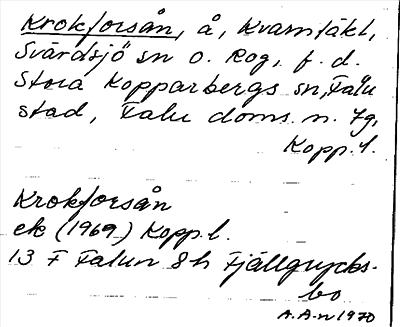 Krokforsån, å, Kvarnfäkt,
Svärdsjö sn o. Rog, f. d.
Stora Kopparbergs sn, Falu
stad, Falu doms. n. tg,
Kopp. l.
Krokforsån
ek (1969) Kopp. l.
13 F Falun 8h Fjällgrycks-
bo
A.A-n 1970